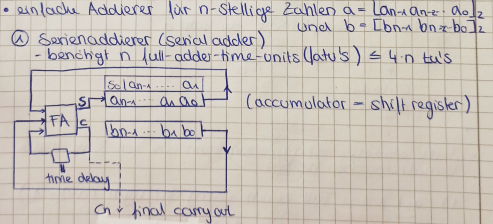 • einfache Addierer für n-stellige Zahlen a = [an-1 an-2 ·· a0]2
und b = [bn-1 bn-2 bo]2
① Serienaddierer (serial adder)
- benötigt n full-adder-time-units (fatu's) ≤ 4·n tu's
So|an-1 ··· a1
an-1 ··· a1 a0
(accumulator – shift register)
S
FA
C
bn-1 ··· b1 b0
time delay
Cn final carry out